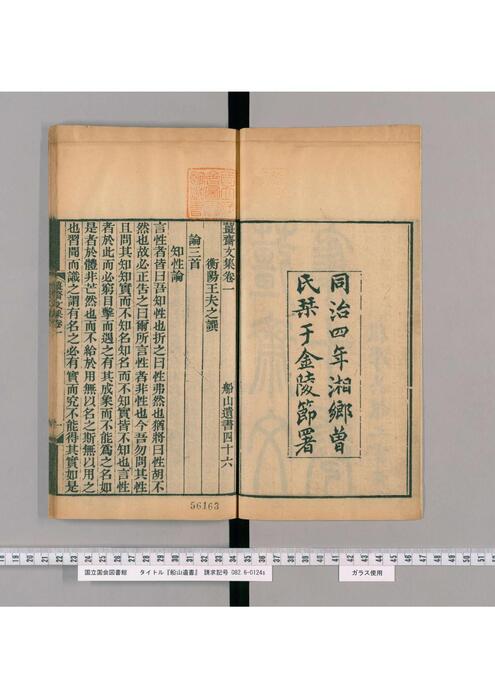 同治四年湘鄉曾
氏栞于金陵節署
薑齋文集卷一
船山遺書四十六
衡陽王夫之譔
論三首
知性論
言性者皆曰吾知性也折之曰性弗然也猶將曰性胡不
然也故必正告之曰爾所言性者非性也今吾勿問其性
且問其知知實而不知名知名而不知實皆不知也言性
者於此而必窮目擊而遇之有其成象而不能爲之名如
是者於體非芒然也而不給於用無以名之斯無以用之
也習聞而識之謂有名之必有實而究不能得其實如是
薑齋文集卷一
一
56163
18 19 20 21 22 23 24 25 26 27 28 29 30 31 32 33 34 35 36 37 38 39 40 41 42 43 44 45 46 47 48 49 50 51
国立国会図書館 タイトル『船山遺書』 請求記号 082.6-O124s
ガラス使用